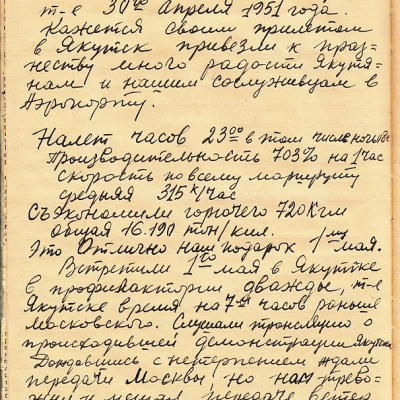 т-е 30го Апреля 1951 года.
Кажется своим прилетом
в Якутск привезли к праз-
неству много радости Якутя-
нам и нашим сослуживцам в
Аэропорту.
Налет часов 23 00 в том числе ночью
Производительность 703% на 1 час
Скорость по всему маршруту
средняя 315 к/час
Съэкономили горючего 720 кгм
общая 16.190 тон/клм.
Это Отлично наш подарок 1му мая.
Встретили 1го мая в Якутске
в профилактории дважды, т-е
Якутске время на 7м часов раньше
Московского. Слушали трансляцию о
происходившей демонстрации Якутска
Дождавшись с нетерпением ждали
передачи Москвы, но нам трево-
жил и мешал передаче ветер